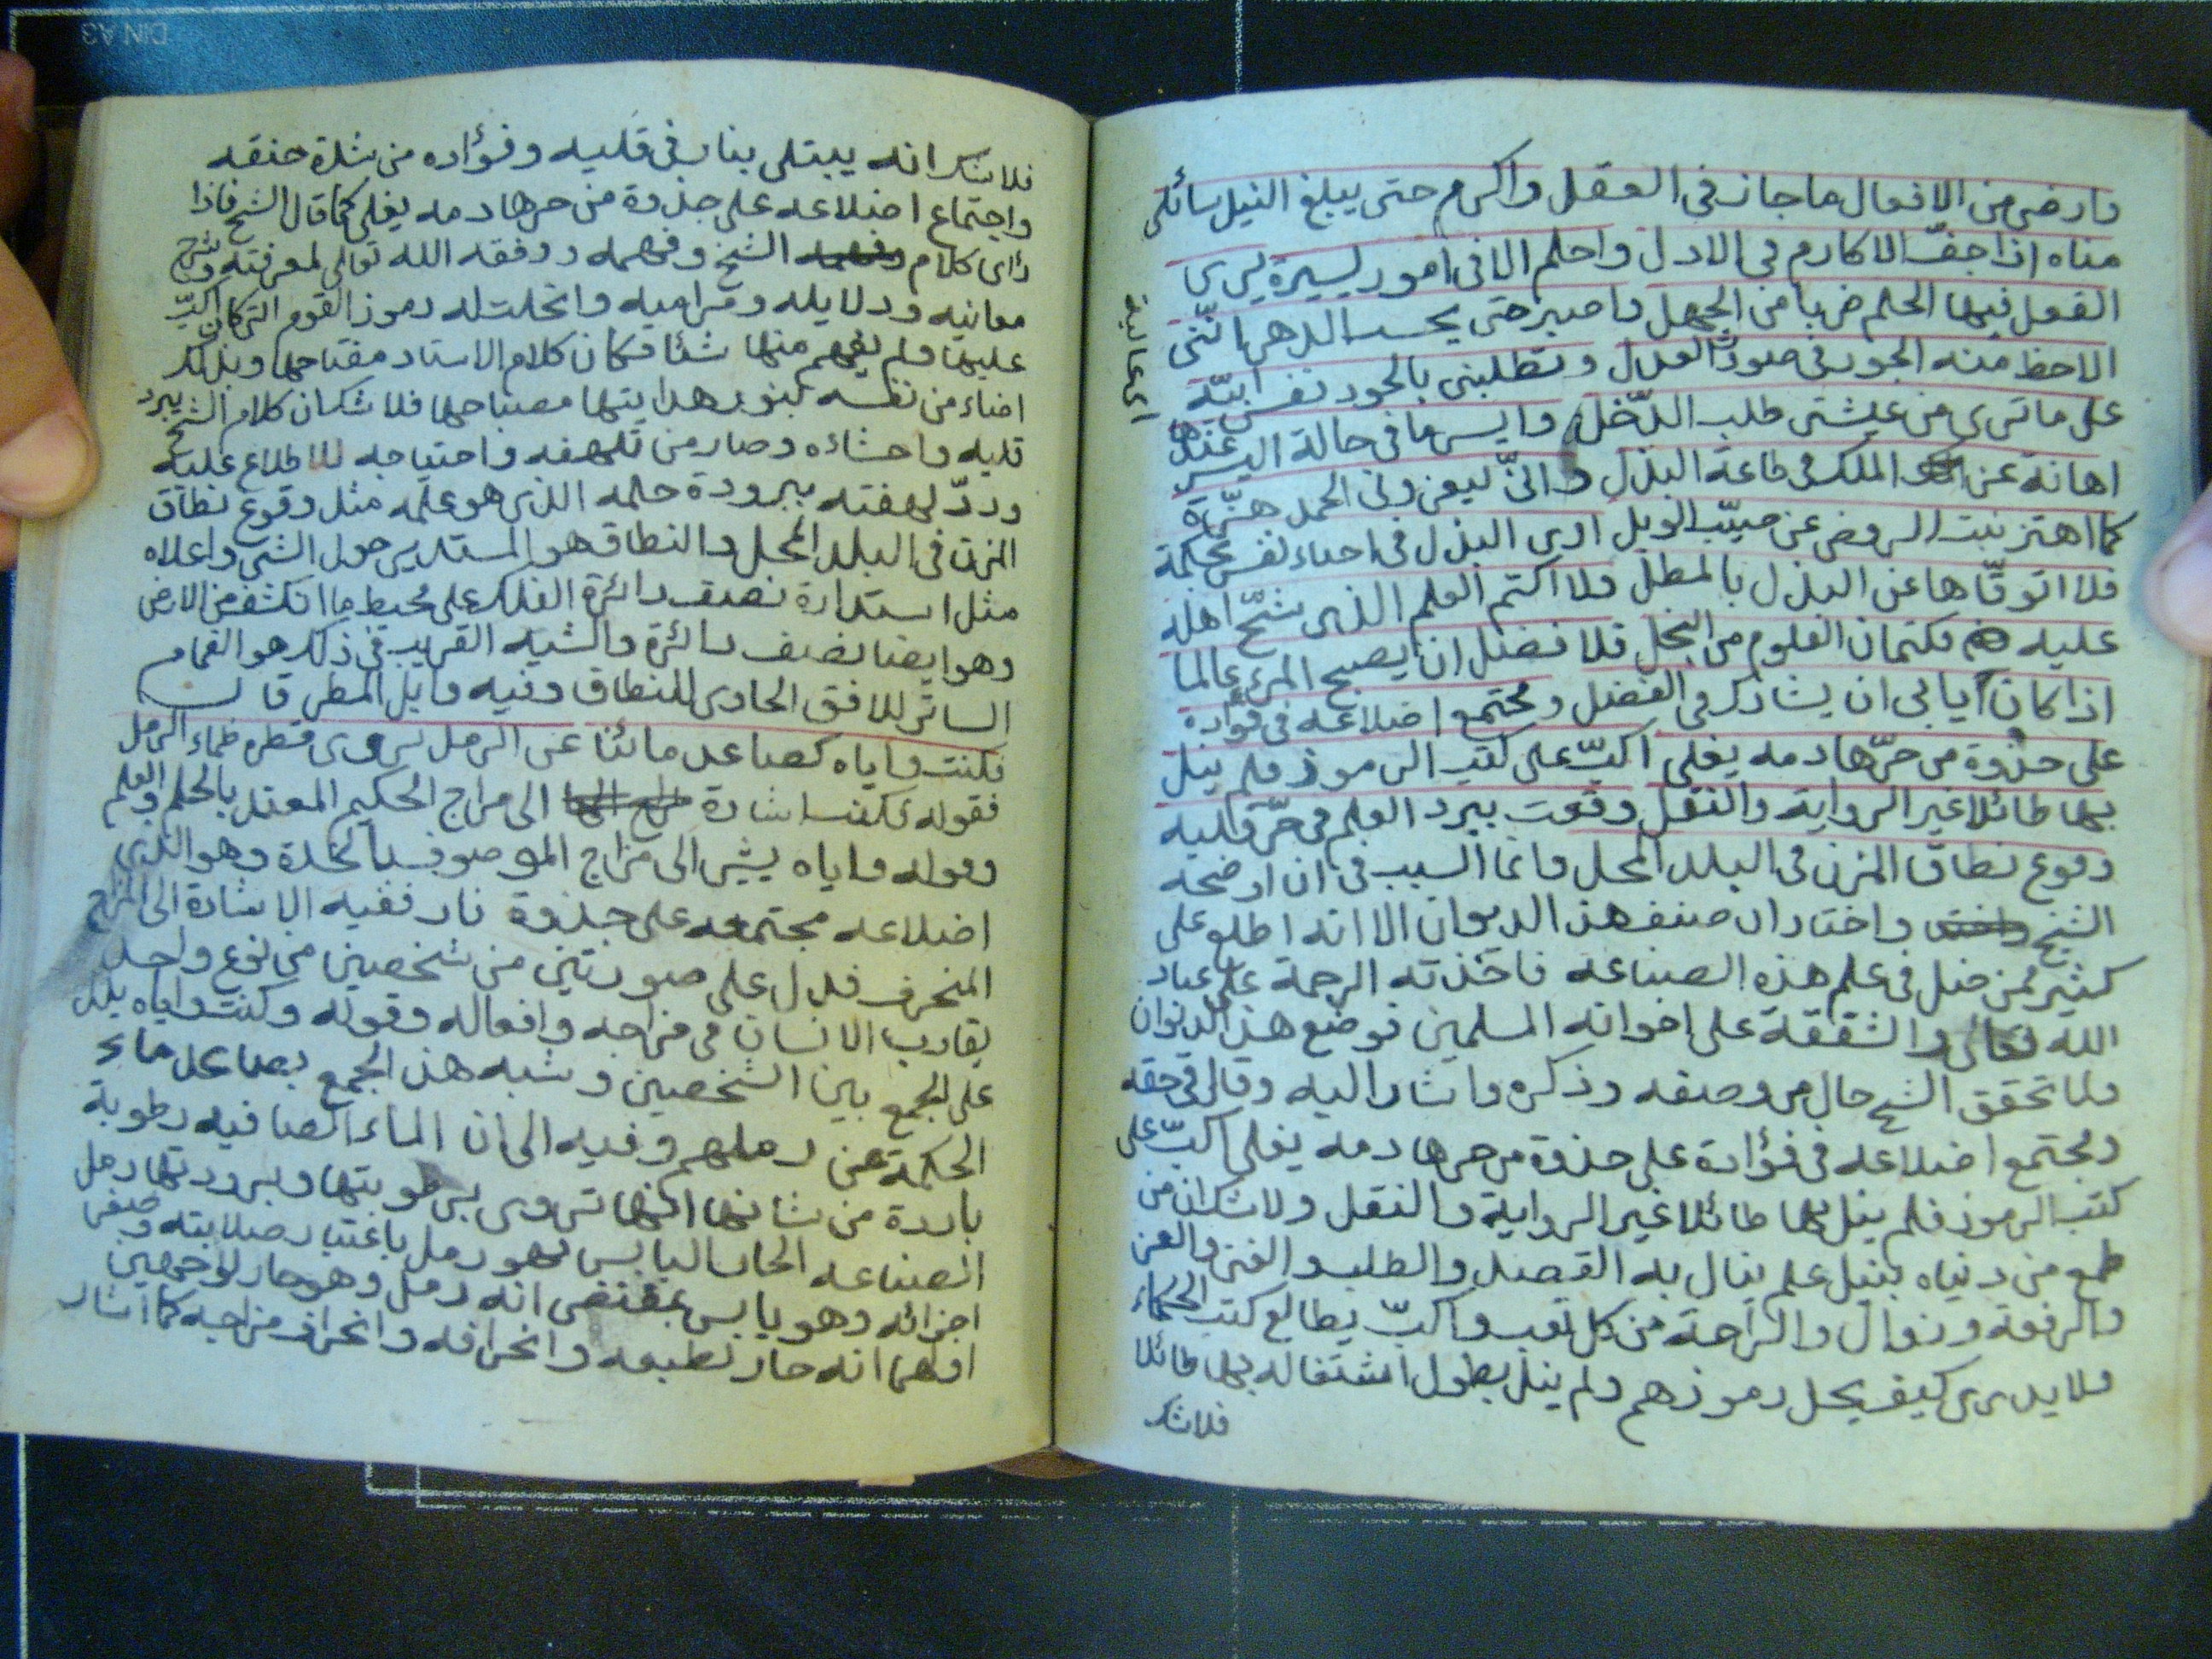 وارضى من الافعال ما جاز فى العقل واكرم حتى يبلغ النيل سائلى
مناه اذا جفّ الاكارم فى الازل واحلم الا فى امور يسيرة يرى
القول فيها الحلم ضربا من الجهل واصبر حتى يحسب الدهر اننى
الاحظ منه الجور فى صورة العدل وتطلبنى بالجود نفس ابيّه
اى عالية
على ما ترى من عيشتى طلب الدّخل وايسر ما فى حالة اليسر عندها
اهانة عن الملك فى طاعة البذل وانّى ليعرونى الحمد هزّة
كما اهتز نبت الروض عن صيّب الوبل ارى البذل فى احياء نفس حكيمة
فلا اتوقّاها عن البذل بالمطل ولا اكتم العلم الذى شحّ اهله
عليه فكتمان العلوم من البخل فلا فضل ان يصبح المرء عالما
اذا كان يابى ان يشارك فى الفضل ومجتمع اضلاعه فى فؤاده
على جذوة من حرّها دمه يغلى اكبّ على كتب الرموز فلم ينل
بها طائلا غير الرواية والنقل وقعت ببرد العلم فى حرّ قلبه
وقوع نطاق المزن فى البلد المحل وانما السبب فى ان اوضحه
الشيخ واختار ان صنف هذا الديوان الا انه اطلع على
كثير ممن ضل فى علم هذه الصناعه فاخذته الرحمة على عباد
الله تعالى والشفقة على اخوانه المسلمين فوضع هذا الديوان
ولما تحقق الشيخ حال من وصفه وذكره واشار اليه وقال فى حقه
ومجتمع اضلاعه فى فؤاده على جذوة من حرها دمه يغلى اكبّ على
كتب الرموز فلم ينل بها طائلا غير الرواية والنقل ولا شك ان من
طمع من دنياه بنيل علم ينال به القصد والطلب والغنى والعز
والرفعة ونوال والراحة من كل تعب واكبّ يطالع كتب الحكماء
ولا يدرى كيف يحل رموزهم ولم ينل بطول اشتغاله بها طائلا
فلا شك
فلا شك انه يبتلى بنار فى قلبه وفؤاده من شدة حنقه
واجتماع اضلاعه على جذوة من حرها دمه يغلى كما قال الشيخ فاذا
راى كلام الشيخ وفهمه ووفقه الله تعالى لمعرفته وشرح
معانيه ودلايله ومراميه وانحلت له رموز القوم التى كان اكبّ
عليها ولم يفهم منها شئا فكان كلام الاستاد مفتاحها وبذلك
اضاء من نفسه بنور هدايتها مصباحها فلا شك ان كلام الشيخ يبرد
قلبه واحشاءه وصار من تلهفه واحتياجه للاطلاع عليه
وردّ لهفته ببرودة حلمه الذى هو علمه مثل وقوع نطاق
المزن فى البلد المحل والنطاق هو المستدير حول الشى واعلاه
مثل استدارة نصف دائرة الفلك على محيط ما انكشف من الارض
وهو ايضا نصف دائرة والشبه القريب فى ذلك هو الغمام
الساتر للافق الحاوى للنطاق وفيه وابل المطر قال
فكنت واياه كصاعد مائنا عن الرمل يروى قطره ظماء الرمل
فقوله فكنت اشارة الى مزاج الحكيم المعتدل بالحلم والعلم
وقوله واياه يشير الى مزاج الموصوف بالحدة وهو الذى
اضلاعه مجتمعه على جذوة نار ففيه الاشارة الى المزاج
المنحرف فدل على صورتين من شخصين من نوع واحد
يقارب الانسان فى مزاجه وافعاله وقوله وكنت واياه يدل
على الجمع بين الشخصين وشبه هذا الجمع بصاعد ماء
الحكمة عن رملهم وفيه الى ان الماء الصافيه رطوبة
باردة من شانها انها تروى برطوبتها وبرودتها رمل
الصناعه الحار اليابس فهو رمل باعتبار صلابته وصغر
اجزائه وهو يابس بمقتضى انه رمل وهو حار لوجهين
اولهما انه حار لطبعه وانحرافه وانحراف مزاجه كما اشار